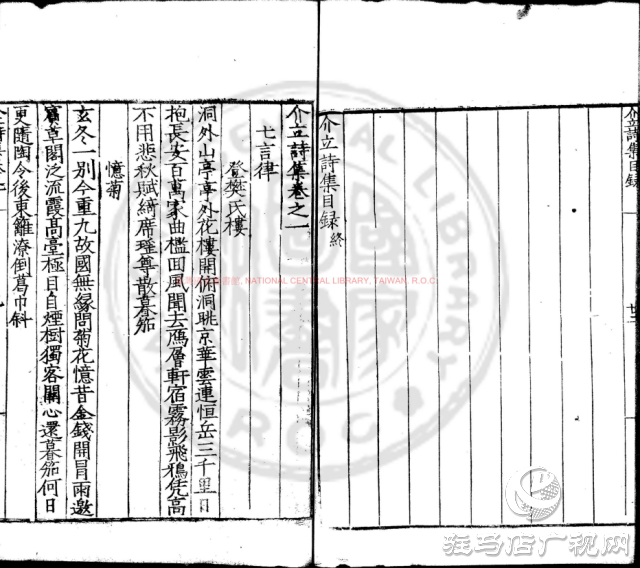 介立詩集目録
介立詩集目録終
介立詩集卷之一
七言律
登樊氏樓
洞外山亭亭外花樓開俯洞眺京華雲連恒岳三千里日
抱長安百萬家曲檻回風聞去鴈層軒宿霧影飛鴉凭高
不用悲秋賦綺席瑶尊散暮笳
憶菊
玄冬一別今重九故國無緣問菊花憶昔金錢開冒雨邀
賔草閣泛流霞髙臺極目自煙樹獨客關心還暮笳何日
更隨陶令後東籬潦倒葛巾斜
NATIONAL CENTRAL LIBRARY, TAIWAN, R.O.C.
驻马店广视网